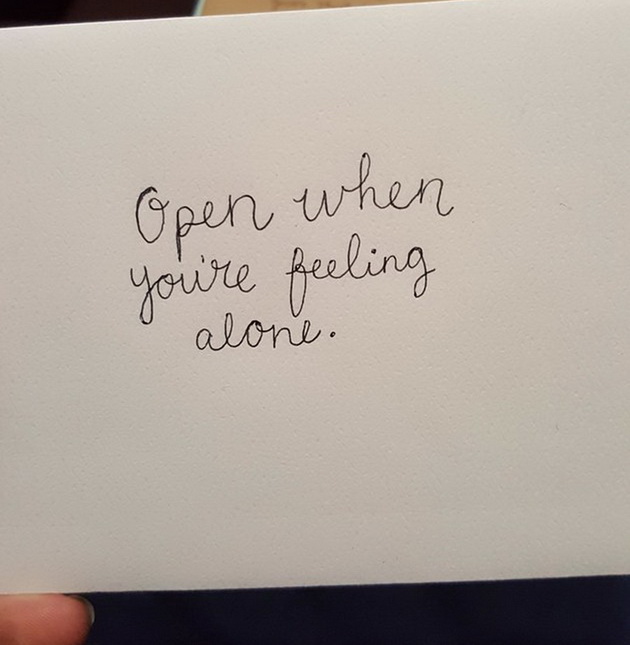 Open when
you're feeling
alone.